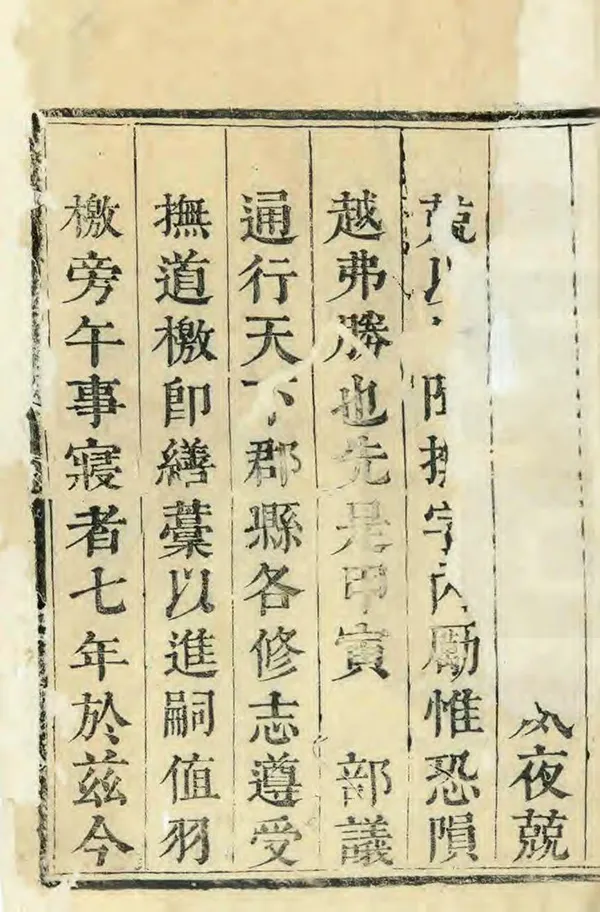 夜兢
兢字內勵惟恐隕
越弗勝也先是甲寅 部議
通行天下郡縣各修志遵受
撫道檄即繕藁以進嗣值羽
檄旁午事寢者七年於茲今